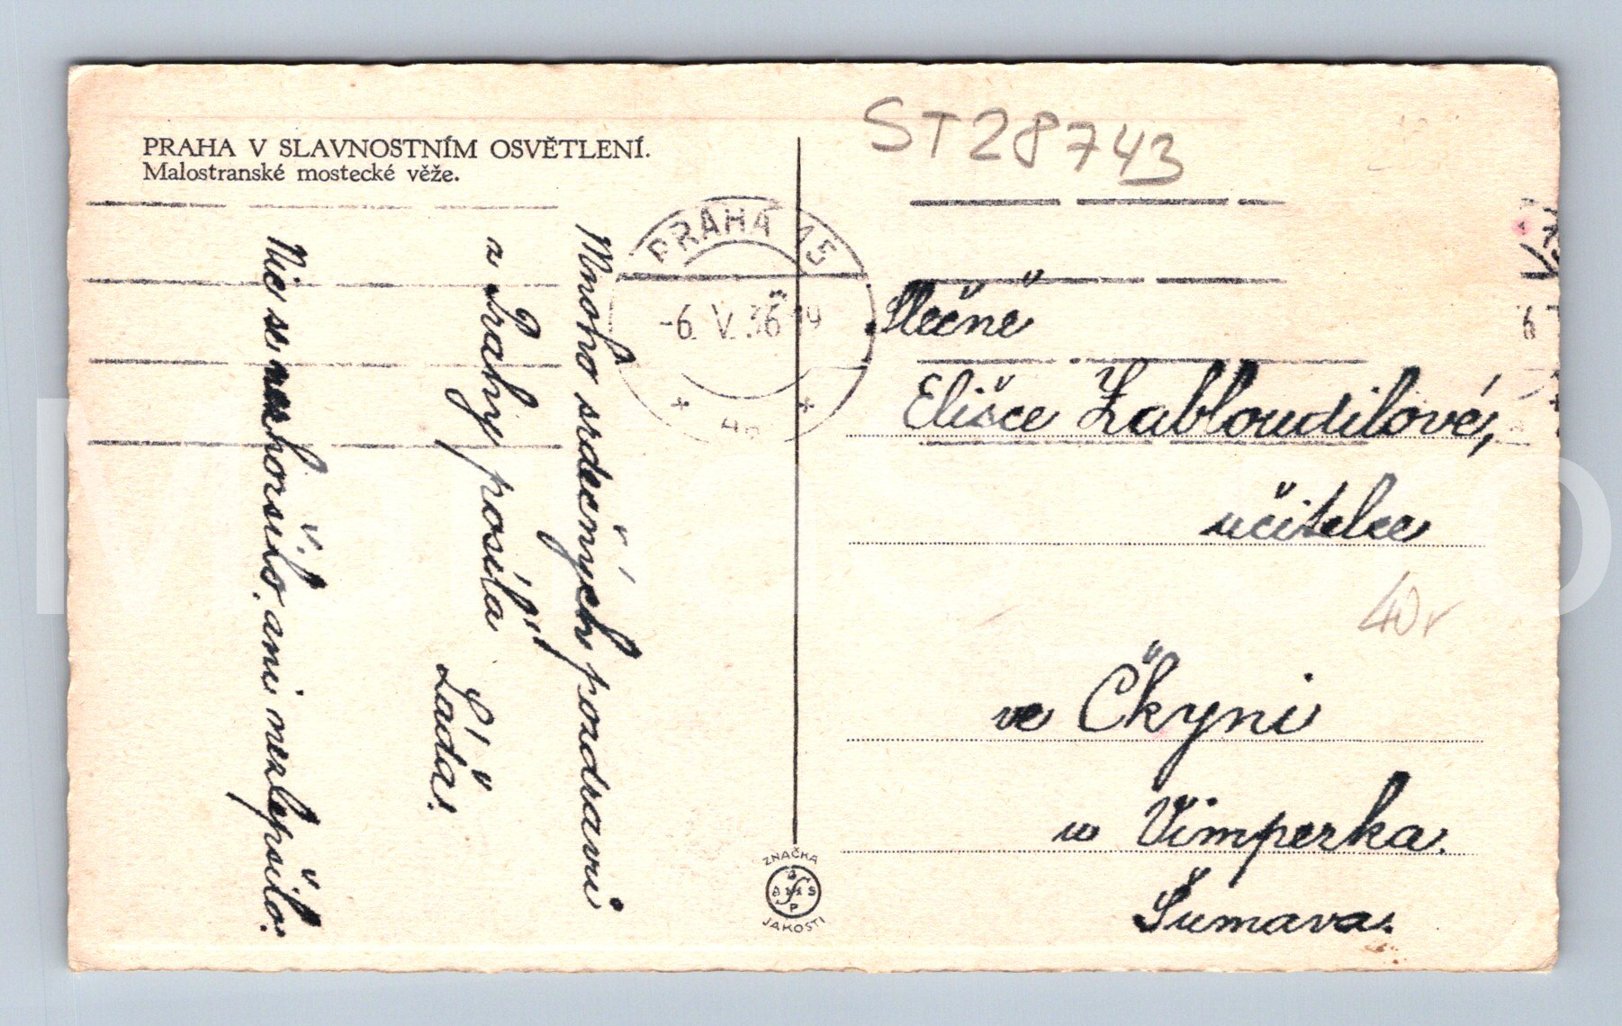 PRAHA V SLAVNOSTNÍM OSVĚTLENÍ.
Malostranské mostecké věže.
ST28743
PRAHA 15
-6. V. 36 19
Mnoho srdečných pozdravů
z Prahy posílá
Láďa.
Nic se nezhoršilo, ani nezlepšilo.
Slečně
Elišce Zabloudilové,
učitelce
40,-
ve Čkyni
u Vimperka.
Šumava.
ZNAČKA
JAKOSTI